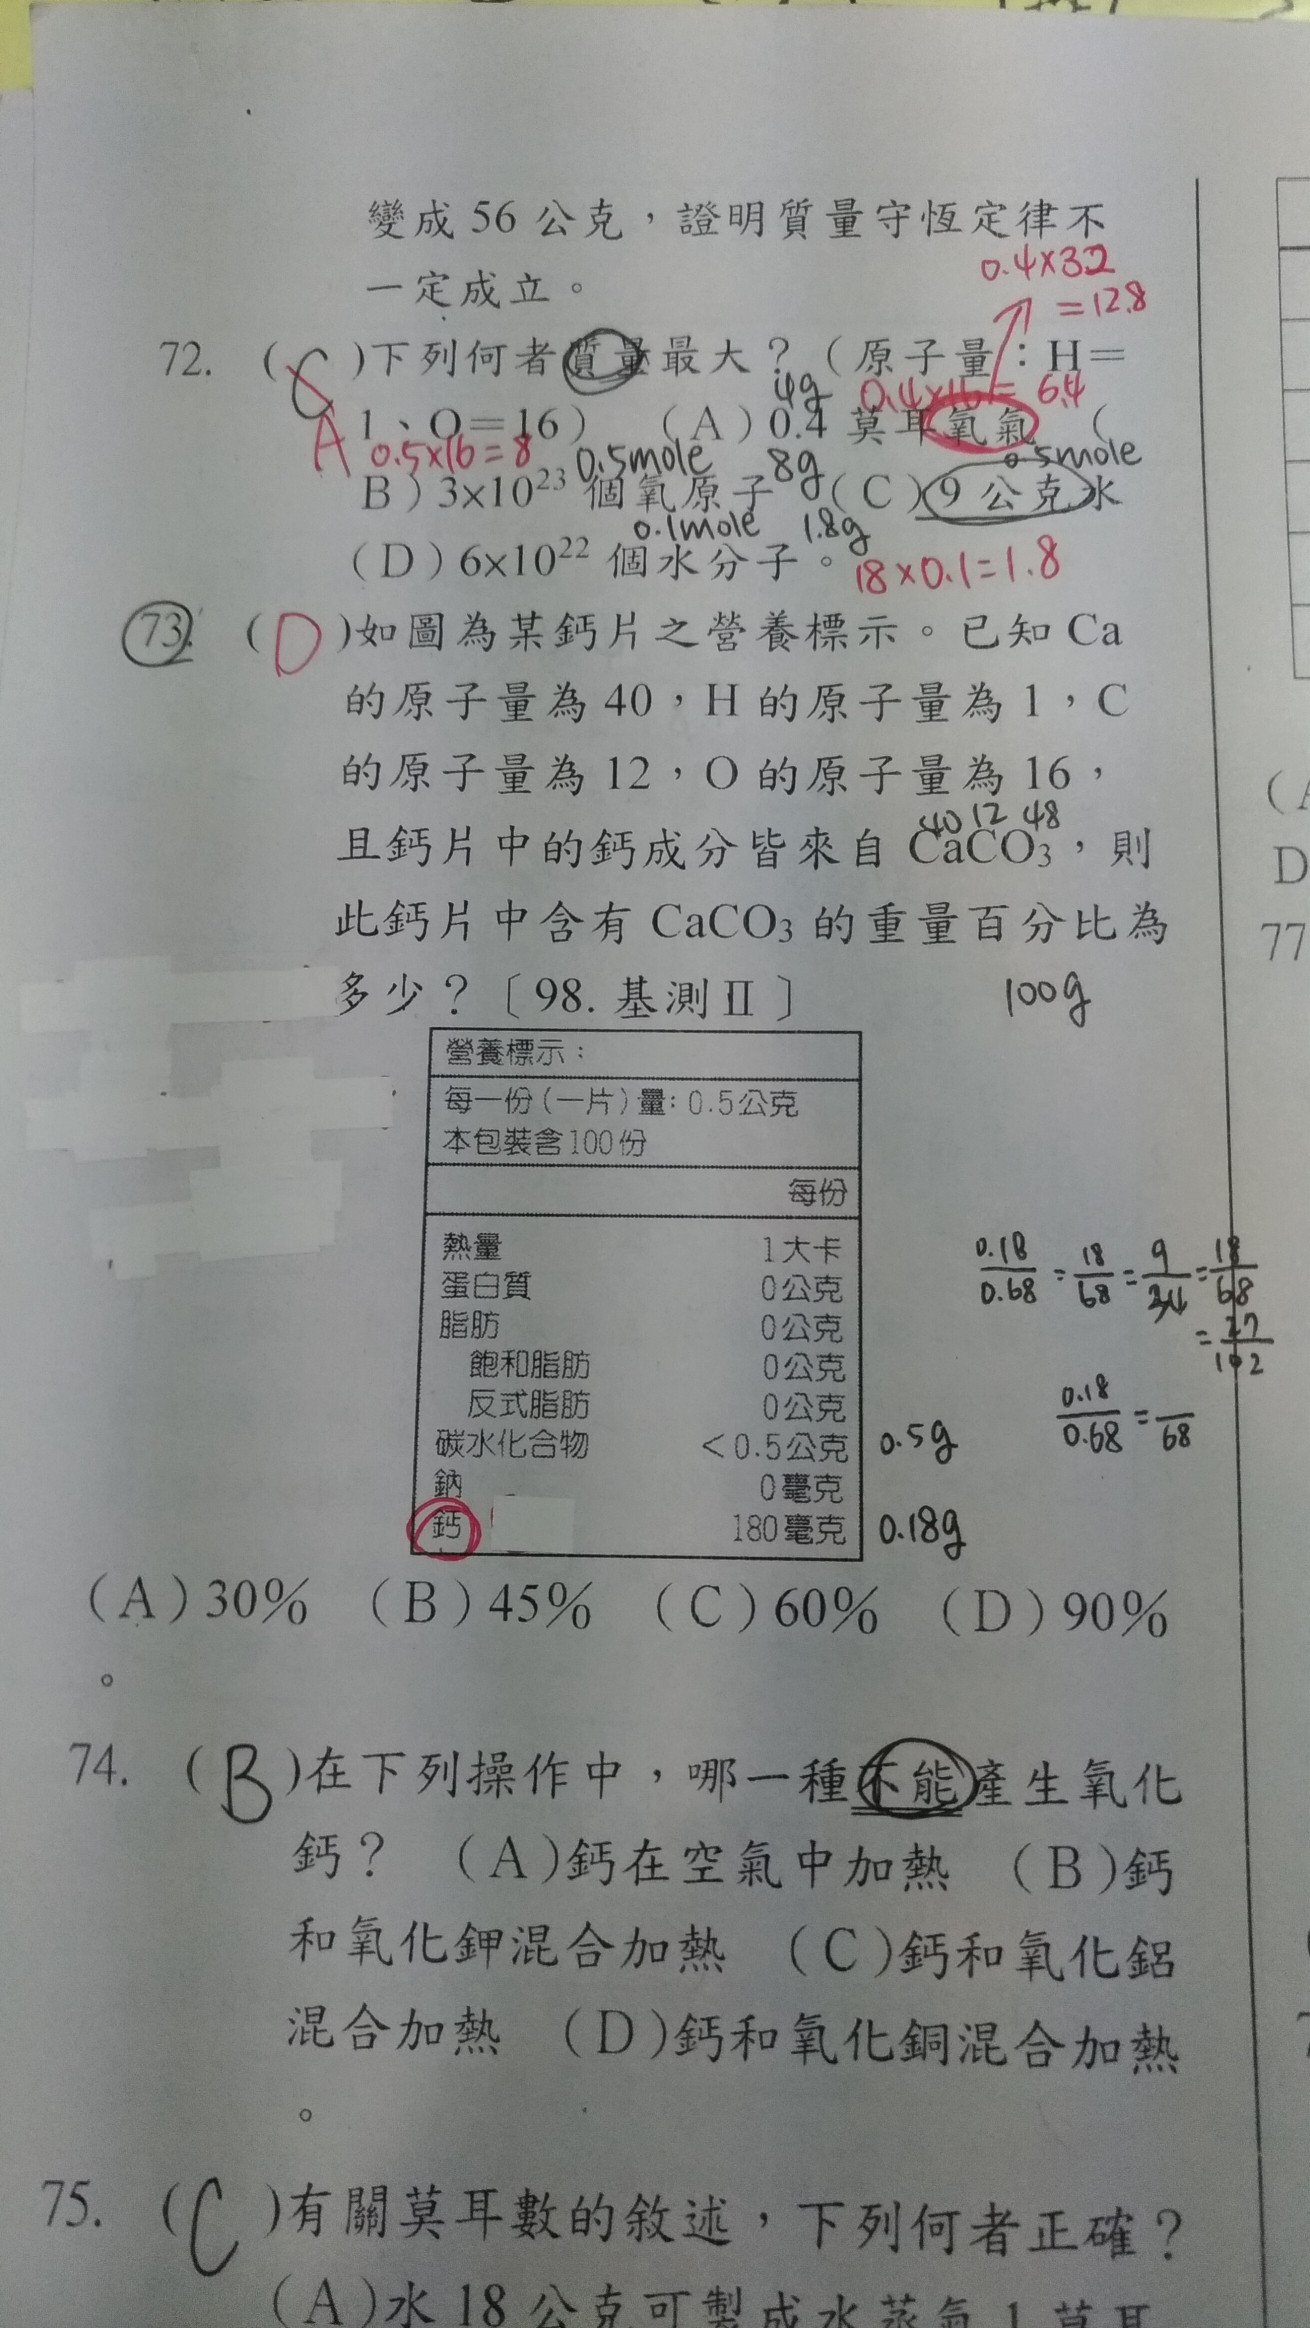 變成 56 公克，證明質量守恆定律不
一定成立。
0.4×32
=12.8
72. ( C )下列何者質量最大？（原子量：H＝
4g 0.4×16= 6.4
A 1、O＝16） (A)0.4 莫耳氧氣 (
0.5×16=8 0.5mole 8g 0.5mole
B)3×10²³ 個氧原子 (C)9 公克水
0.1mole 1.8g
(D)6×10²² 個水分子。 18×0.1=1.8
73. ( D )如圖為某鈣片之營養標示。已知 Ca
的原子量為 40，H 的原子量為 1，C
的原子量為 12，O 的原子量為 16，
40 12 48
且鈣片中的鈣成分皆來自 CaCO₃，則
此鈣片中含有 CaCO₃ 的重量百分比為
多少？〔98. 基測Ⅱ〕 100g
營養標示：
每一份(一片)量: 0.5公克
本包裝含100份
每份
熱量 1大卡
蛋白質 0公克
脂肪 0公克
飽和脂肪 0公克
反式脂肪 0公克
碳水化合物 ＜0.5公克 0.5g
鈉 0毫克
鈣 180毫克 0.18g
0.18/0.68 = 18/68 = 9/34 = 18/68
= 27/102
0.18/0.68 = /68
(A)30% (B)45% (C)60% (D)90%
。
74. ( B )在下列操作中，哪一種不能產生氧化
鈣？ (A)鈣在空氣中加熱 (B)鈣
和氧化鉀混合加熱 (C)鈣和氧化鋁
混合加熱 (D)鈣和氧化銅混合加熱
。
75. ( C )有關莫耳數的敘述，下列何者正確？
(A)水 18 公克可製成水蒸氣 1 莫耳
(A
D
77